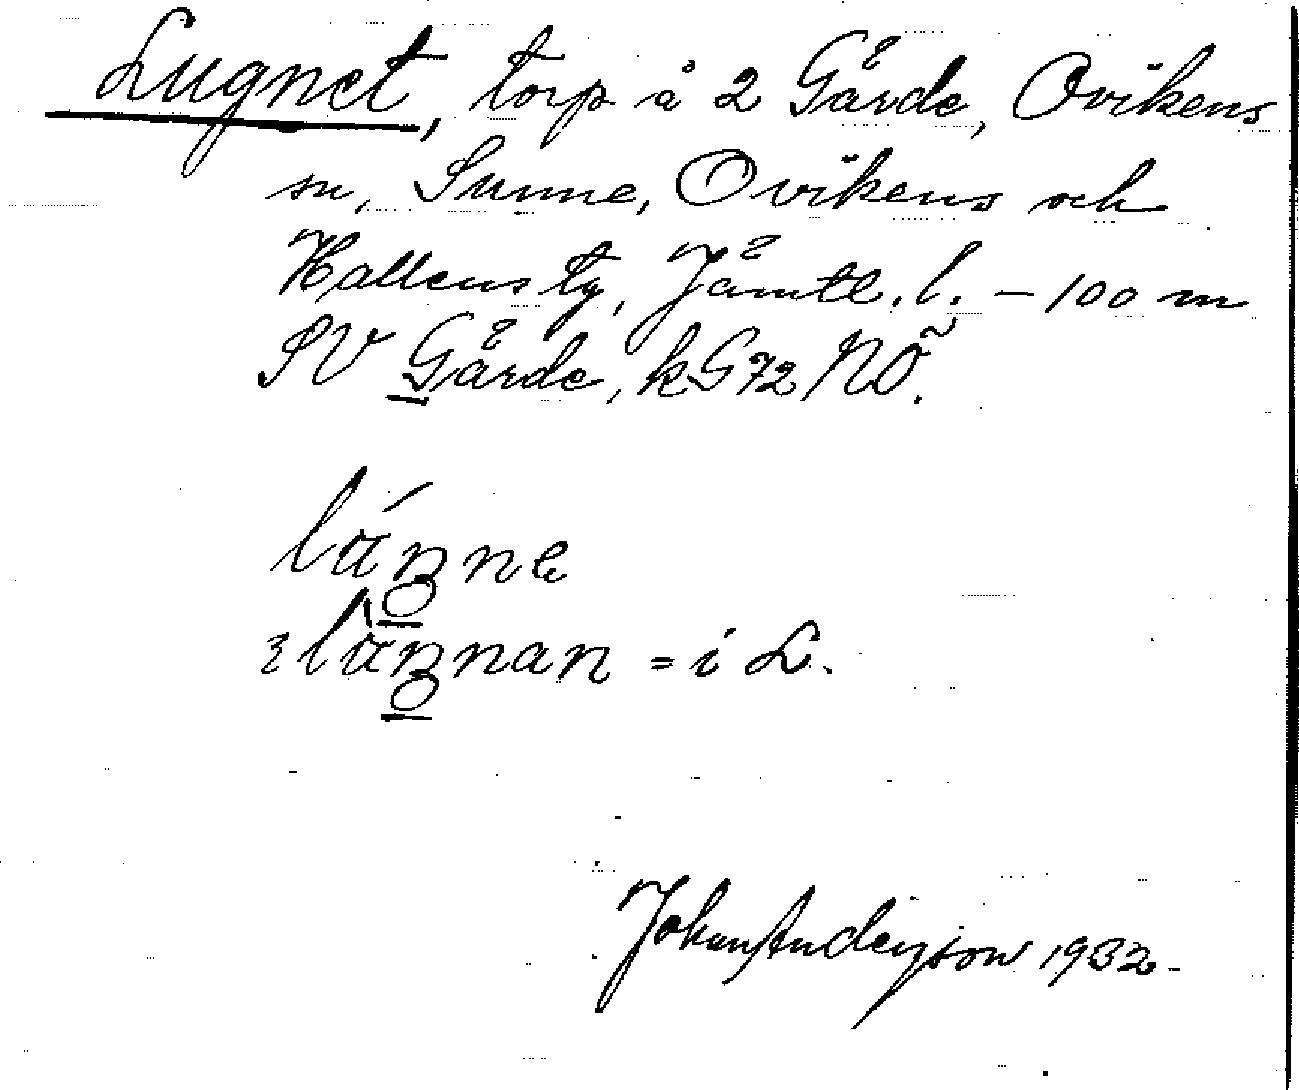 Lugnet, torp å 2 Gärde, Ovikens
sn, Sunne, Ovikens och
Hallens tg, Jämtl. l. – 100 m
SV Gärde, kG72 NÖ.
= i L.
Johan Anderson 1932